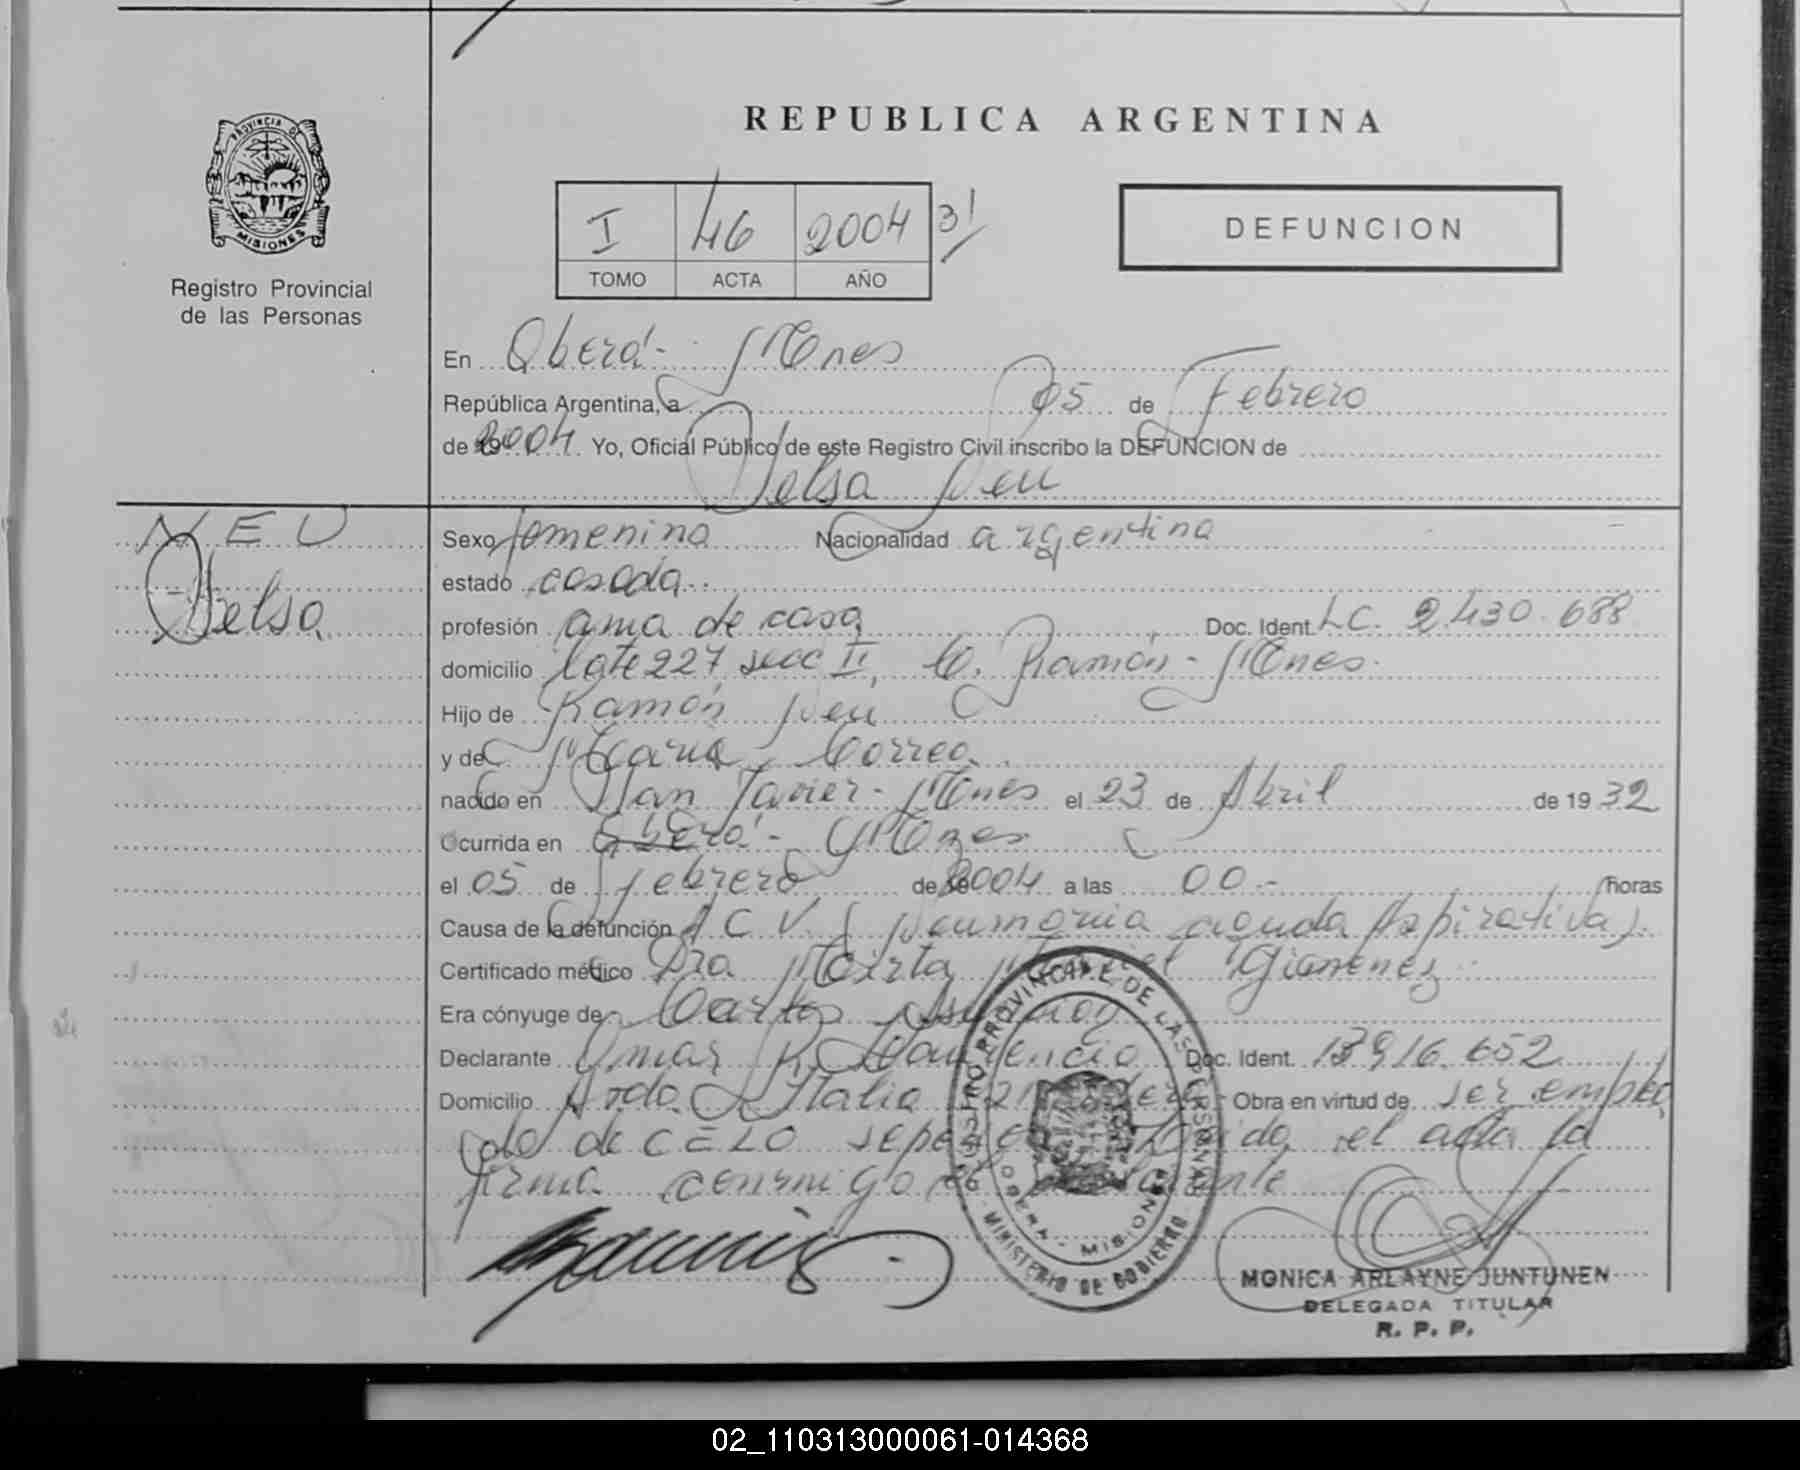 REPUBLICA ARGENTINA
PROVINCIA DE
MISIONES
Registro Provincial
de las Personas
I 46 2004 31
TOMO ACTA AÑO
DEFUNCION
En Oberá - Mnes
República Argentina, a 05 de Febrero
de 2004 Yo, Oficial Público de este Registro Civil inscribo la DEFUNCION de
Nelsa Neu
NEU
Nelsa
Sexo femenino Nacionalidad argentina
estado casada
profesión ama de casa Doc. Ident. L.C. 2.430.688
domicilio lote 227 secc II, C. Ramón - Mnes.
Hijo de Ramón Neu
y de María Correa
nacido en San Javier - Mnes el 23 de Abril de 1932
Ocurrida en Oberá - Mnes
el 05 de febrero de 2004 a las 00.- horas
Causa de la defunción ACV. (Neumonia aguda Aspirativa).
Certificado médico Dra Mirta Gimenez
Era cónyuge de Carlos
Declarante Omar R. Doc. Ident. 13916.652
Domicilio Avda Italia Obra en virtud de ser emplea
do de CELO el acta la
firma conmigo el
REGISTRO PROVINCIAL DE LAS PERSONAS
OBERA - MISIONES
MINISTERIO DE GOBIERNO
MONICA ARLAYNE JUNTUNEN
DELEGADA TITULAR
R. P. P.
02_110313000061-014368